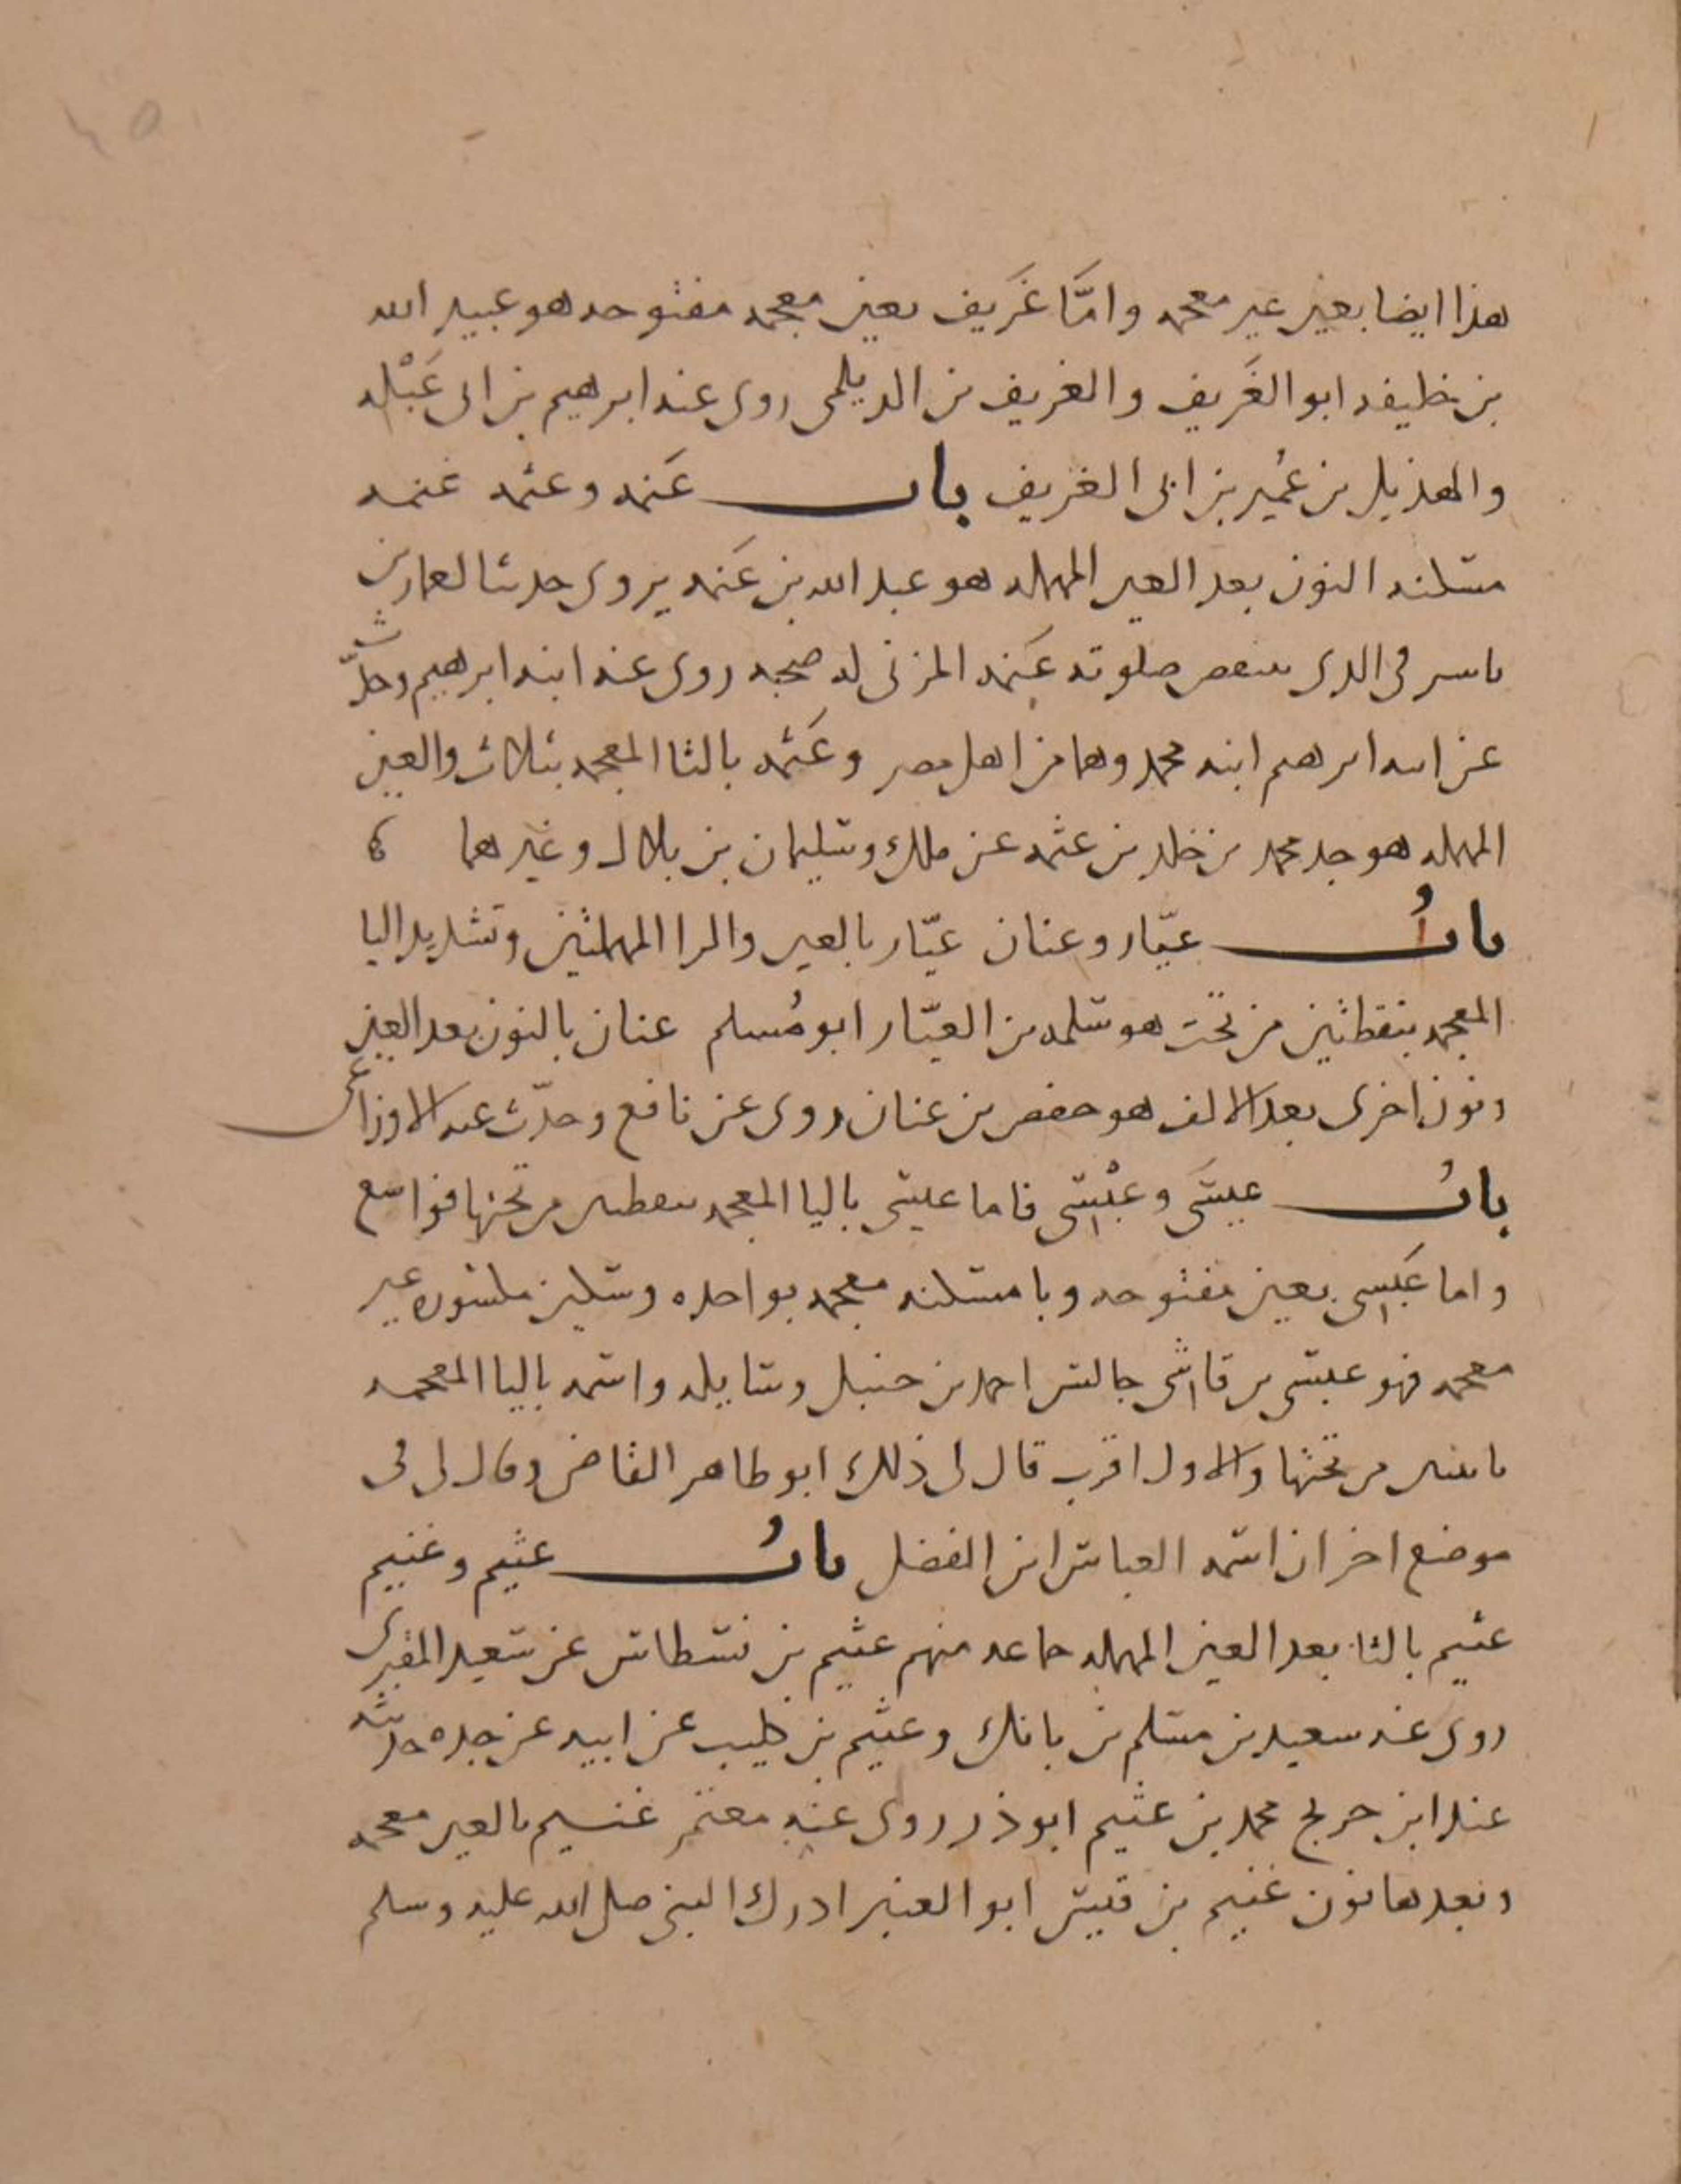 هذا ايضا بعين غير معجمه وامَّا غَريف بعين معجمه مفتوحه هو عبيد الله
بن خليفه ابو الغَريف والغريف بن الديلمى روى عنه ابرهيم بن ابى عَبْله
والهذيل بن عُمير بن ابى الغريف باب عَنمه وعثمه عنمه
مسكنه النون بعد العين المهمله هو عبد الله بن عَنمه يروى حديثا لعمار بن
ياسر فى الذى ينقص صلوته عَنمه المزنى له صحبه روى عنه ابنه ابرهيم وحدّث
عن ابنه ابرهيم ابنه محمد وهما من اهل مصر وعَثمه بالثا المعجمه بثلاث والعين
المهمله هو جد محمد بن خلد بن عثمه عن ملك وسليمان بن بلال وغيرهما
بابُ عيّار وعنان عيّار بالعين والرا المهملتين وتشديد اليا
المعجمه بنقطتين من تحت هو سلمه بن العيّار ابو مُسلم عنان بالنون بعد العين
ونون اخرى بعد الالف هو حفص بن عنان روى عن نافع وحدّث عنه الاوزاعى
بابُ عيسَى وعبْسى فاما عيسى باليا المعجمه بنقطتين من تحتها فواسع
واما عَبسى بعين مفتوحه وبا مسكنه معجمه بواحده وسين مكسوره غير
معجمه فهو عبسى بن قاشى جالس احمد بن حنبل وسايله واسمه باليا المعجمه
باثنين من تحتها والاول اقرب قال لى ذلك ابو طاهر القاضى وقال لى فى
موضع اخر ان اسمه العباس ابن الفضل بابُ عثيم وغنيم
عثيم بالثا بعد العين المهمله جماعه منهم عثيم بن نسطاس عن سعيد المقبرى
روى عنه سعيد بن مسلم بن بانك وعثيم بن كليب عن ابيه عن جده حديثه
عند ابن جريج محمد بن عثيم ابو ذر روى عنه معتمر غنيم بالعين معجمه
وبعدها نون غنيم بن قيس ابو العنبر ادرك النبى صلى الله عليه وسلم